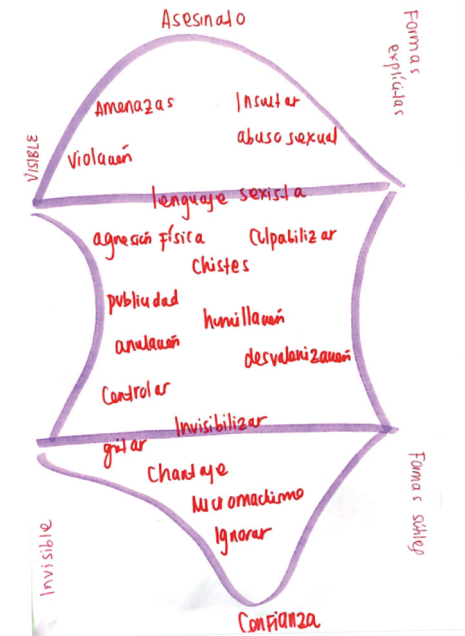 Asesinato
Formas
explícitas
Amenazas
Insultar
abuso sexual
Violación
VISIBLE
lenguaje sexista
agresión física
Culpabilizar
Chistes
publicidad
humillación
anulación
desvalorización
Controlar
Invisibilizar
gritar
Chantaje
Micromachismo
Ignorar
Formas sútiles
Invisible
Confianza